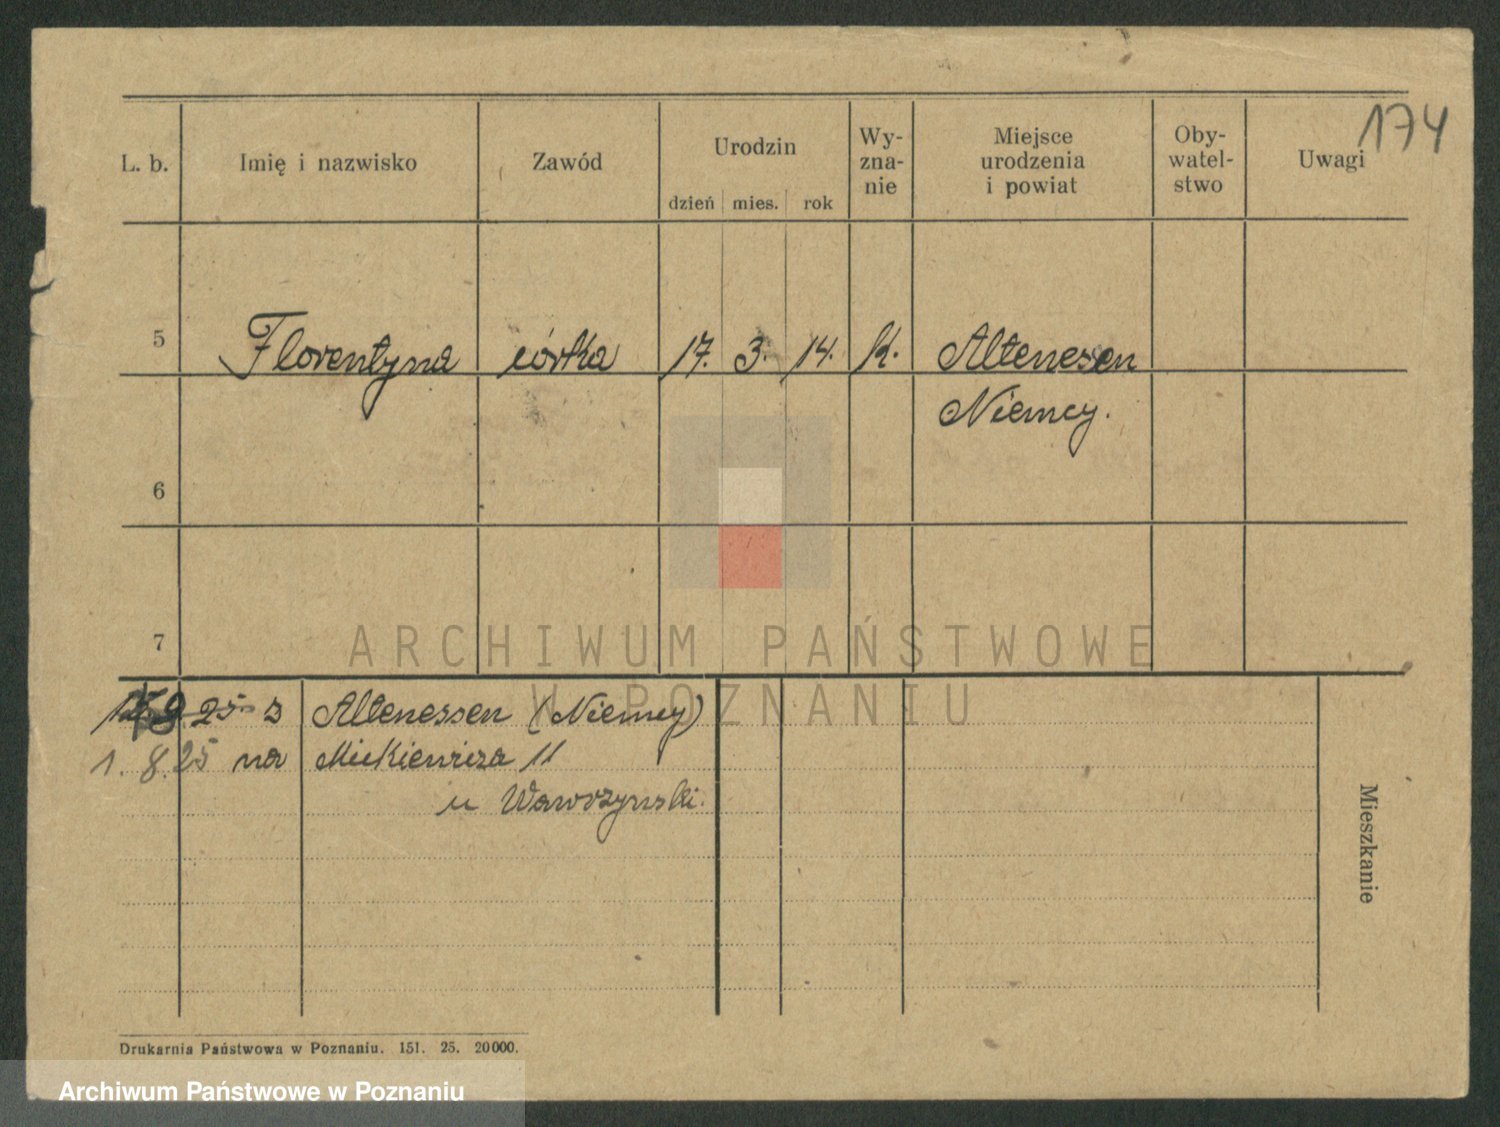 174
L. b. Imię i nazwisko Zawód Urodzin Wy- Miejsce Oby- Uwagi
zna- urodzenia watel-
nie i powiat stwo
dzień mies. rok
5 Florentyna córka 17. 3. 14. k. Altenessen
Niemcy.
6
7
ARCHIWUM PAŃSTWOWE
W POZNANIU
9 25 z Altenessen (Niemcy)
1. 8. 25 na Mickiewicza 11
u Wawrzynski.
Mieszkanie
Drukarnia Państwowa w Poznaniu. 151. 25. 20000.
Archiwum Państwowe w Poznaniu